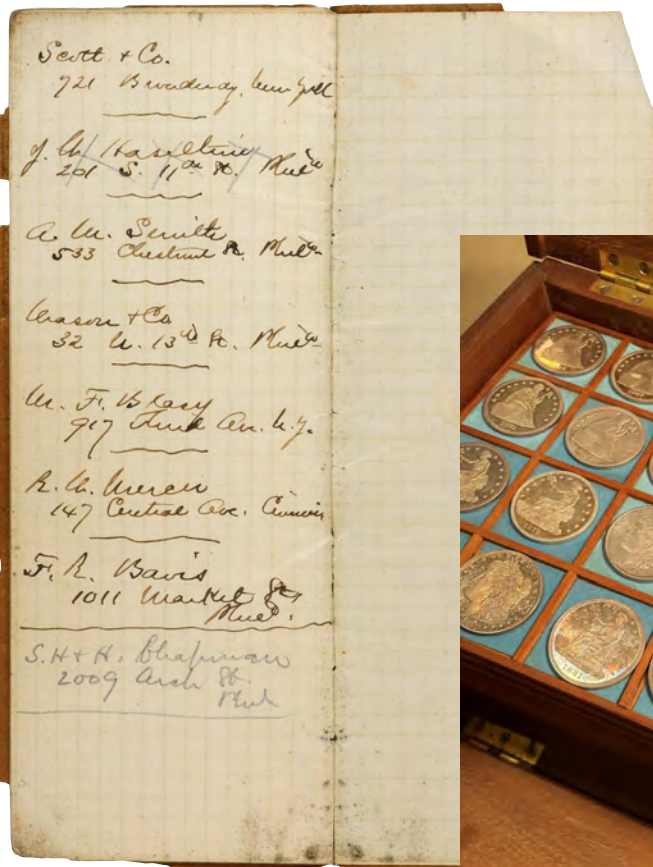 Scott + Co.
721 Broadway, New York
J. W. Haseltine
201 S. 11th St. Phila
A. M. Smith
533 Chestnut St. Phila
Mason + Co
32 N. 13th St. Phila
917 Third Av. N.Y.
147 Central Ave.
F. R. Davis
1011 Market St
Phil.
S.H + H. Chapman
2009 Arch St.
Phil